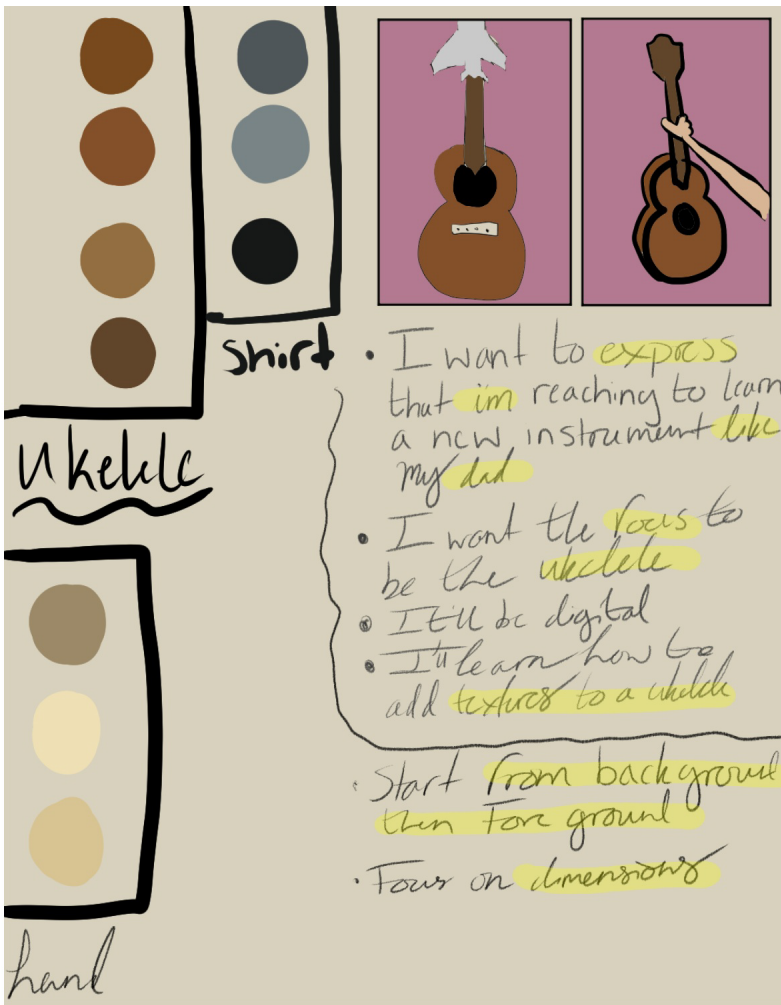 Shirt
Ukelele
hand
• I want to express
that im reaching to learn
a new instrument like
my dad
• I want the focus to
be the ukelele
• It'll be digital
• I'll learn how to
add textures to a ukelele
• Start from background
then Fore ground
• Focus on dimensions